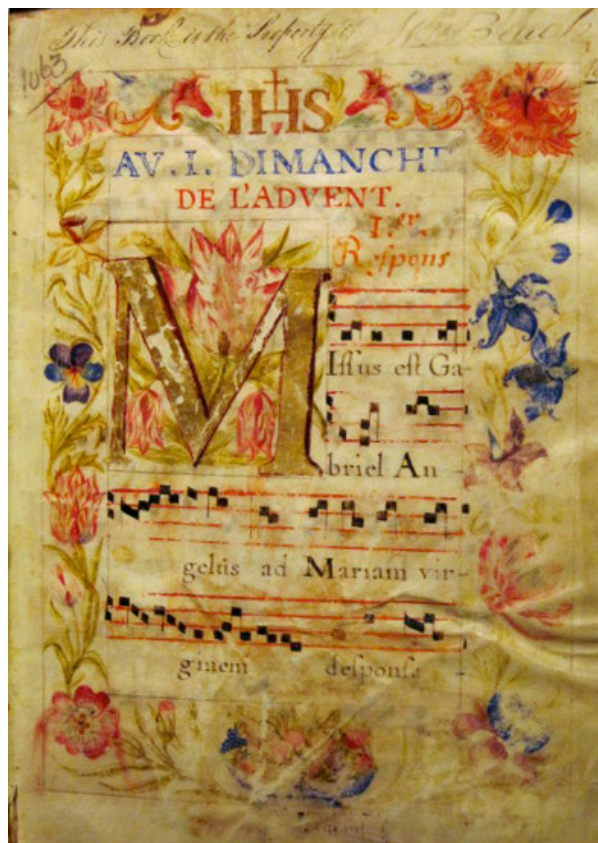 This Book is the Property of
1063
IHS
AV. I. DIMANCHE
DE L'ADVENT.
I.er
Respons
MIssus est Ga-
briel An -
gelus ad Mariam vir-
ginem desponsa -